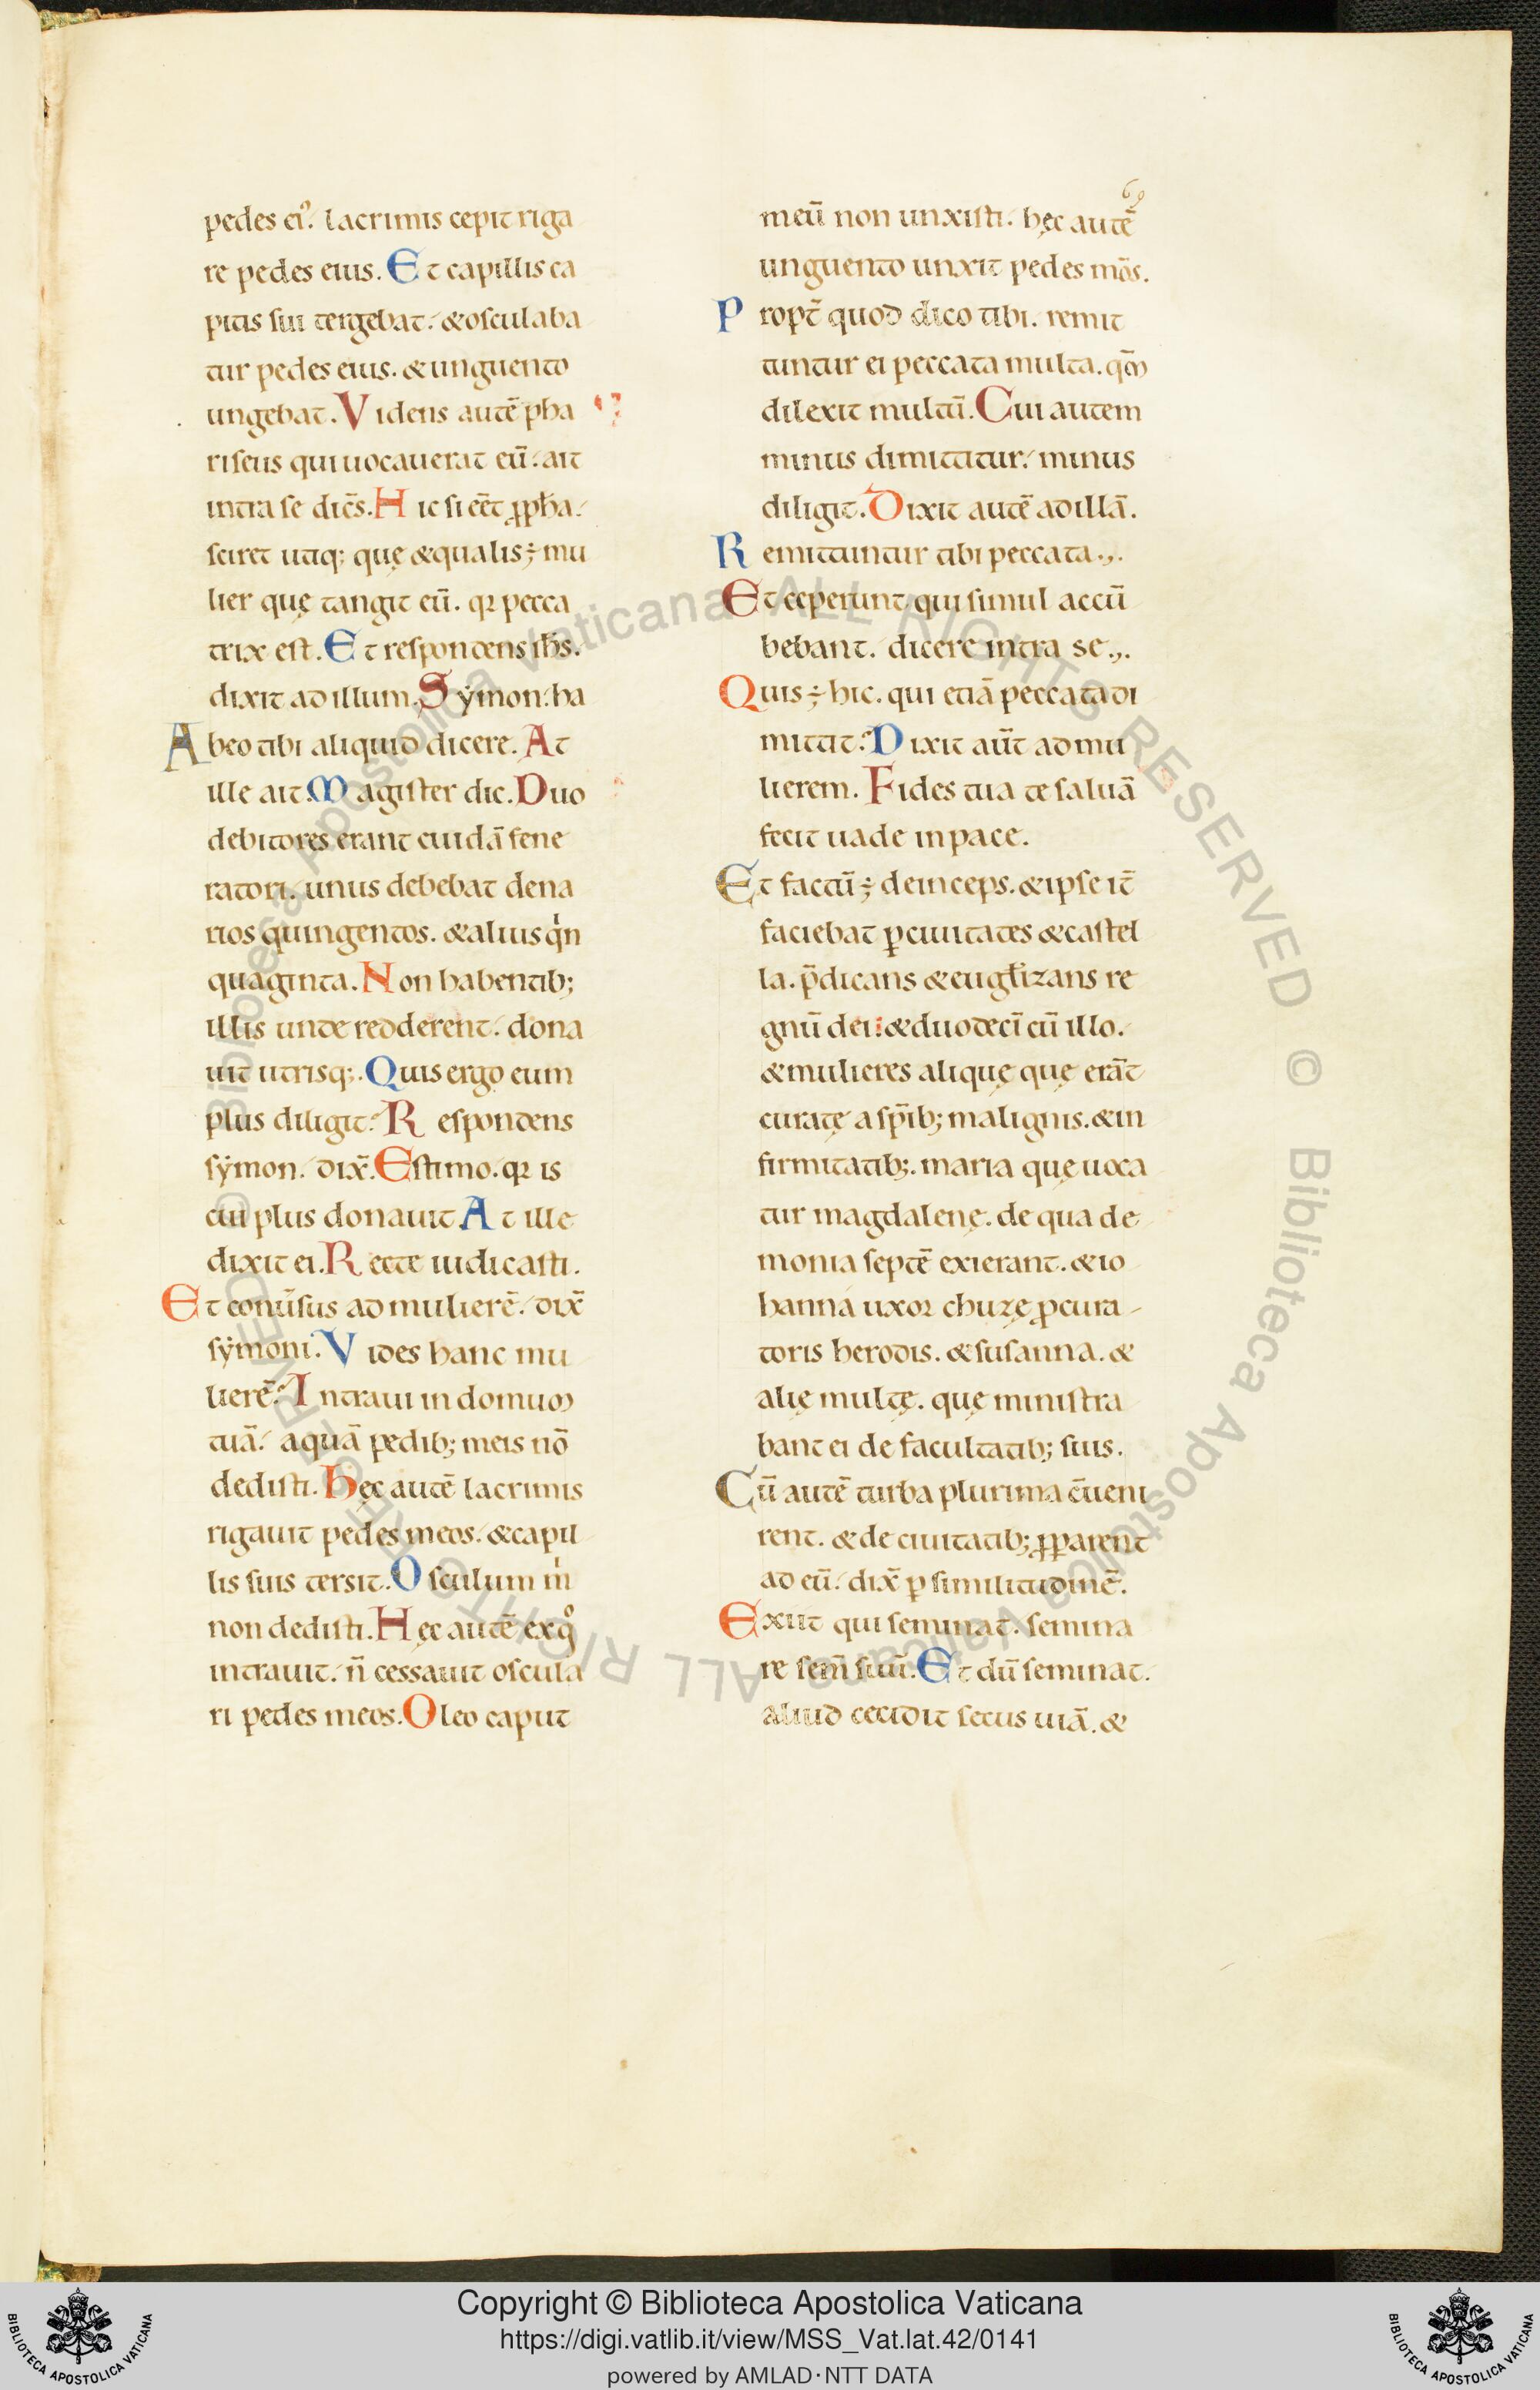 69
pedes ei᷒. lacrimis cepit riga
re pedes eius. Et capillis ca
pitis sui tergebat. &osculaba
tur pedes eius. &unguento
ungebat. Videns autē pha
riseus qui uocauerat eū. ait
intra se dicēs. Hic si eēt ꝓph̄a.
sciret utiq; quę &qualis ÷ mu
lier quę tangit eū. qꝛ pecca
trix est. Et respondens ih̄s.
dixit ad illum. Sẏmon. ha
Abeo tibi aliquid dicere. At
ille ait. Magister dic. Duo
debitores erant cuidā fene
ratori. unus debebat dena
rios quingentos. &alius qͥn
quaginta. Non habentib;
illis unde redderent. dona
uit utrisq;. Quis ergo eum
plus diligit. Respondens
sẏmon. dix̄. Estimo. qꝛ is
cui plus donauit At ille
dixit ei. Recte iudicasti.
Et conũsus ad mulierē. dix̄
sẏmoni. Vides hanc mu
lierē. Intraui in domum
tuā. aquā pedib; meis nō
dedisti. hęc autē lacrimis
rigauit pedes meos. &capil
lis suis tersit. Osculum mͥ
non dedisti. Hęc autē ex qͦ
intrauit. n̄ cessauit oscula
ri pedes meos. Oleo caput
meū non unxisti. hęc autē
unguento unxit pedes mōs.
Propt̄ quod dico tibi. remit
tuntur ei peccata multa. qm̄
dilexit multū. Cui autem
minus dimittitur. minus
diligit. Dixit autē ad illā.
Remittuntur tibi peccata.,.
Et ceperunt qui simul accū
bebant. dicere intra se.,.
Quis ÷ hic. qui etiā peccata di
mittit. Dixit aūt ad mu
lierem. Fides tua te saluā
fecit uade in pace.
Et factū ÷ deinceps. &ipse it̄
faciebat ꝑ ciuitates &castel
la. p̄dicans &eugłizans re
gnū dei: &duodecī cū illo.
&mulieres alique quę erāt
curatę a sp̄ib; malignis. &in
firmitatib;. maria quę uoca
tur magdalenę. de qua de
monia septē exierant. &io
hanna uxor chuzę ꝓcura
toris herodis. &susanna. &
alię multę. quę ministra
bant ei de facultatib; suis.
Cū autē turba plurima c̄ueni
rent. &de ciuitatib; ꝓꝑarent
ad eū. dix̄ ꝑ similitudinē.
Exiit qui seminat. semina
re sem̄ suū. Et dū seminat.
aliud cecidit secus uiā. &
© Biblioteca Apostolica Vaticana ALL RIGHTS RESERVED © Biblioteca Apostolica Vaticana ALL RIGHTS RESERVED
Copyright © Biblioteca Apostolica Vaticana
https://digi.vatlib.it/view/MSS_Vat.lat.42/0141
powered by AMLAD·NTT DATA
BIBLIOTECA APOSTOLICA VATICANA
BIBLIOTECA APOSTOLICA VATICANA